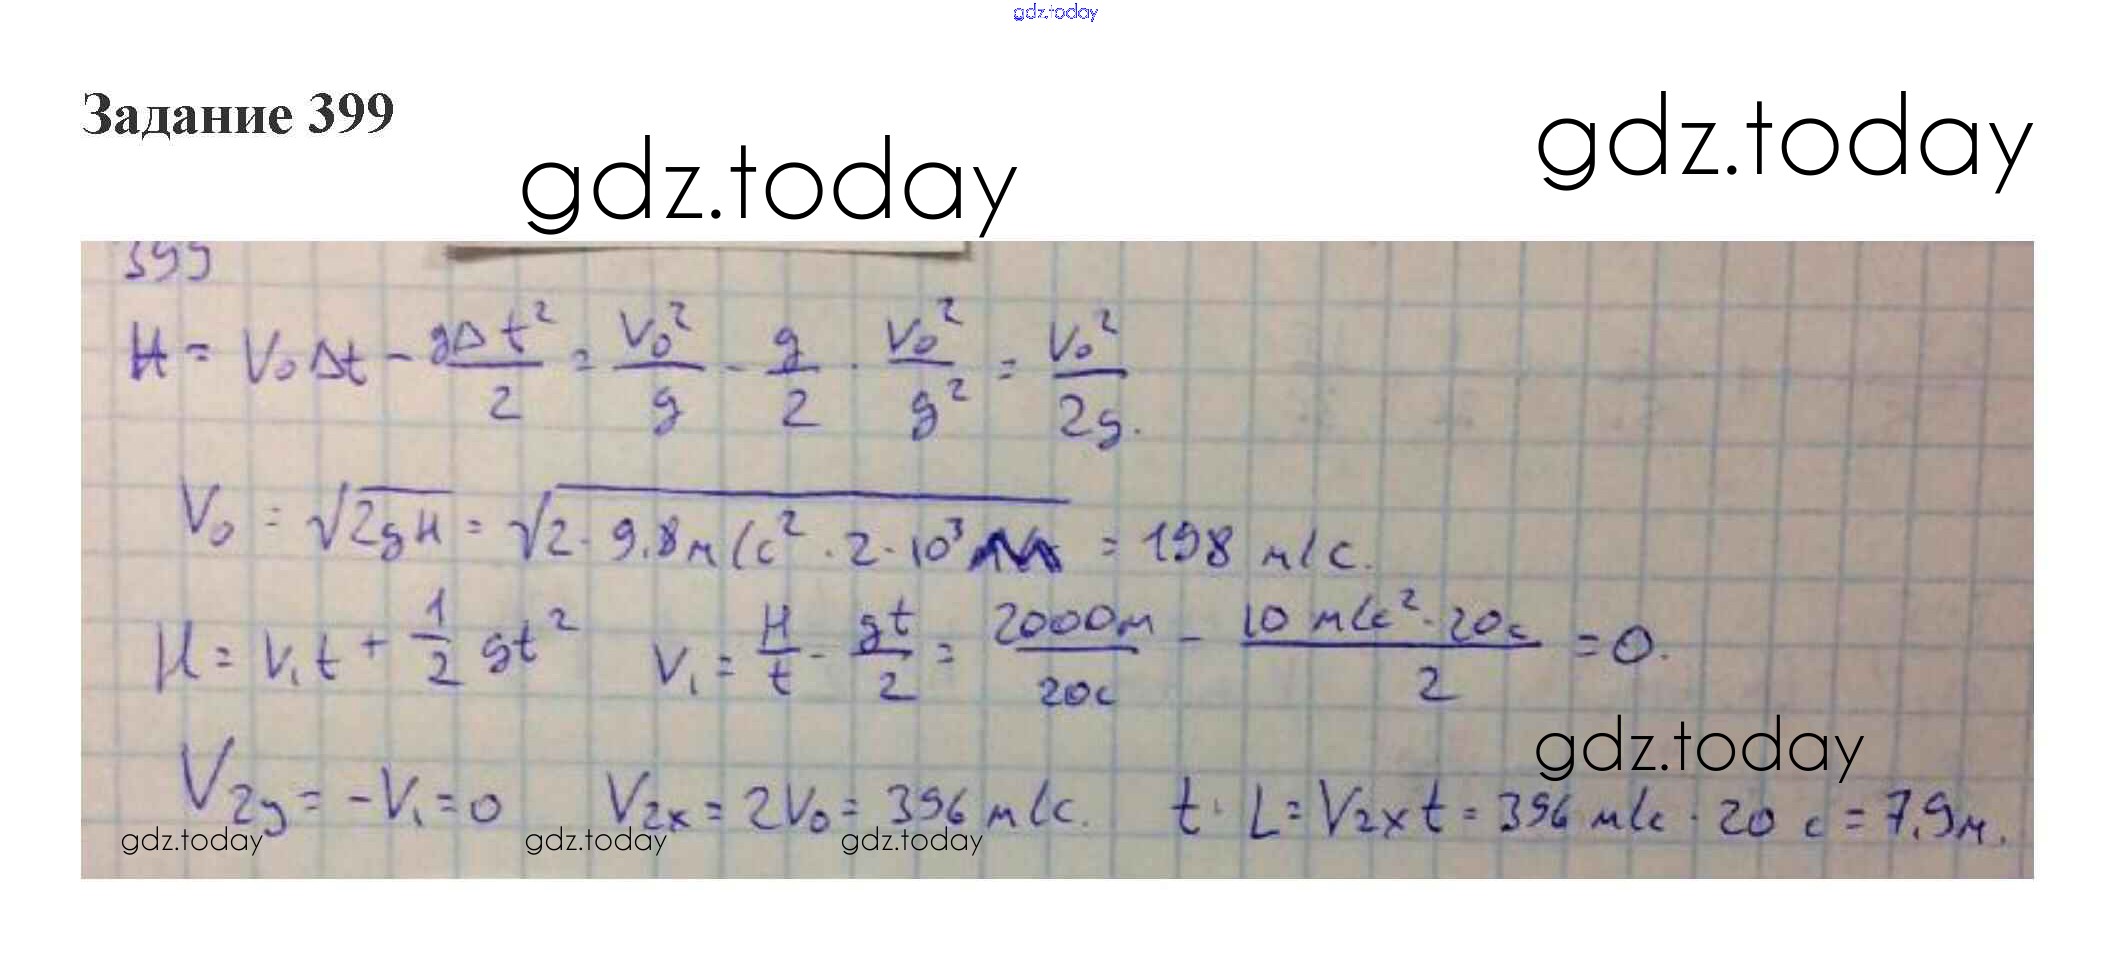 gdz.today
Задание 399
gdz.today
gdz.today
399
H = V₀Δt - gΔt²/2 = V₀²/g - g/2 · V₀²/g² = V₀²/2g.
V₀ = √2gH = √2 · 9,8 м/с² · 2 · 10³ = 198 м/с.
H = V₁t + 1/2 gt² V₁ = H/t - gt/2 = 2000м/20с - 10 м/с² · 20с/2 = 0.
gdz.today
V₂y = -V₁ = 0 V₂x = 2V₀ = 396 м/с. t· L = V₂xt = 396 м/с · 20 с = 7,9м.
gdz.today gdz.today gdz.today